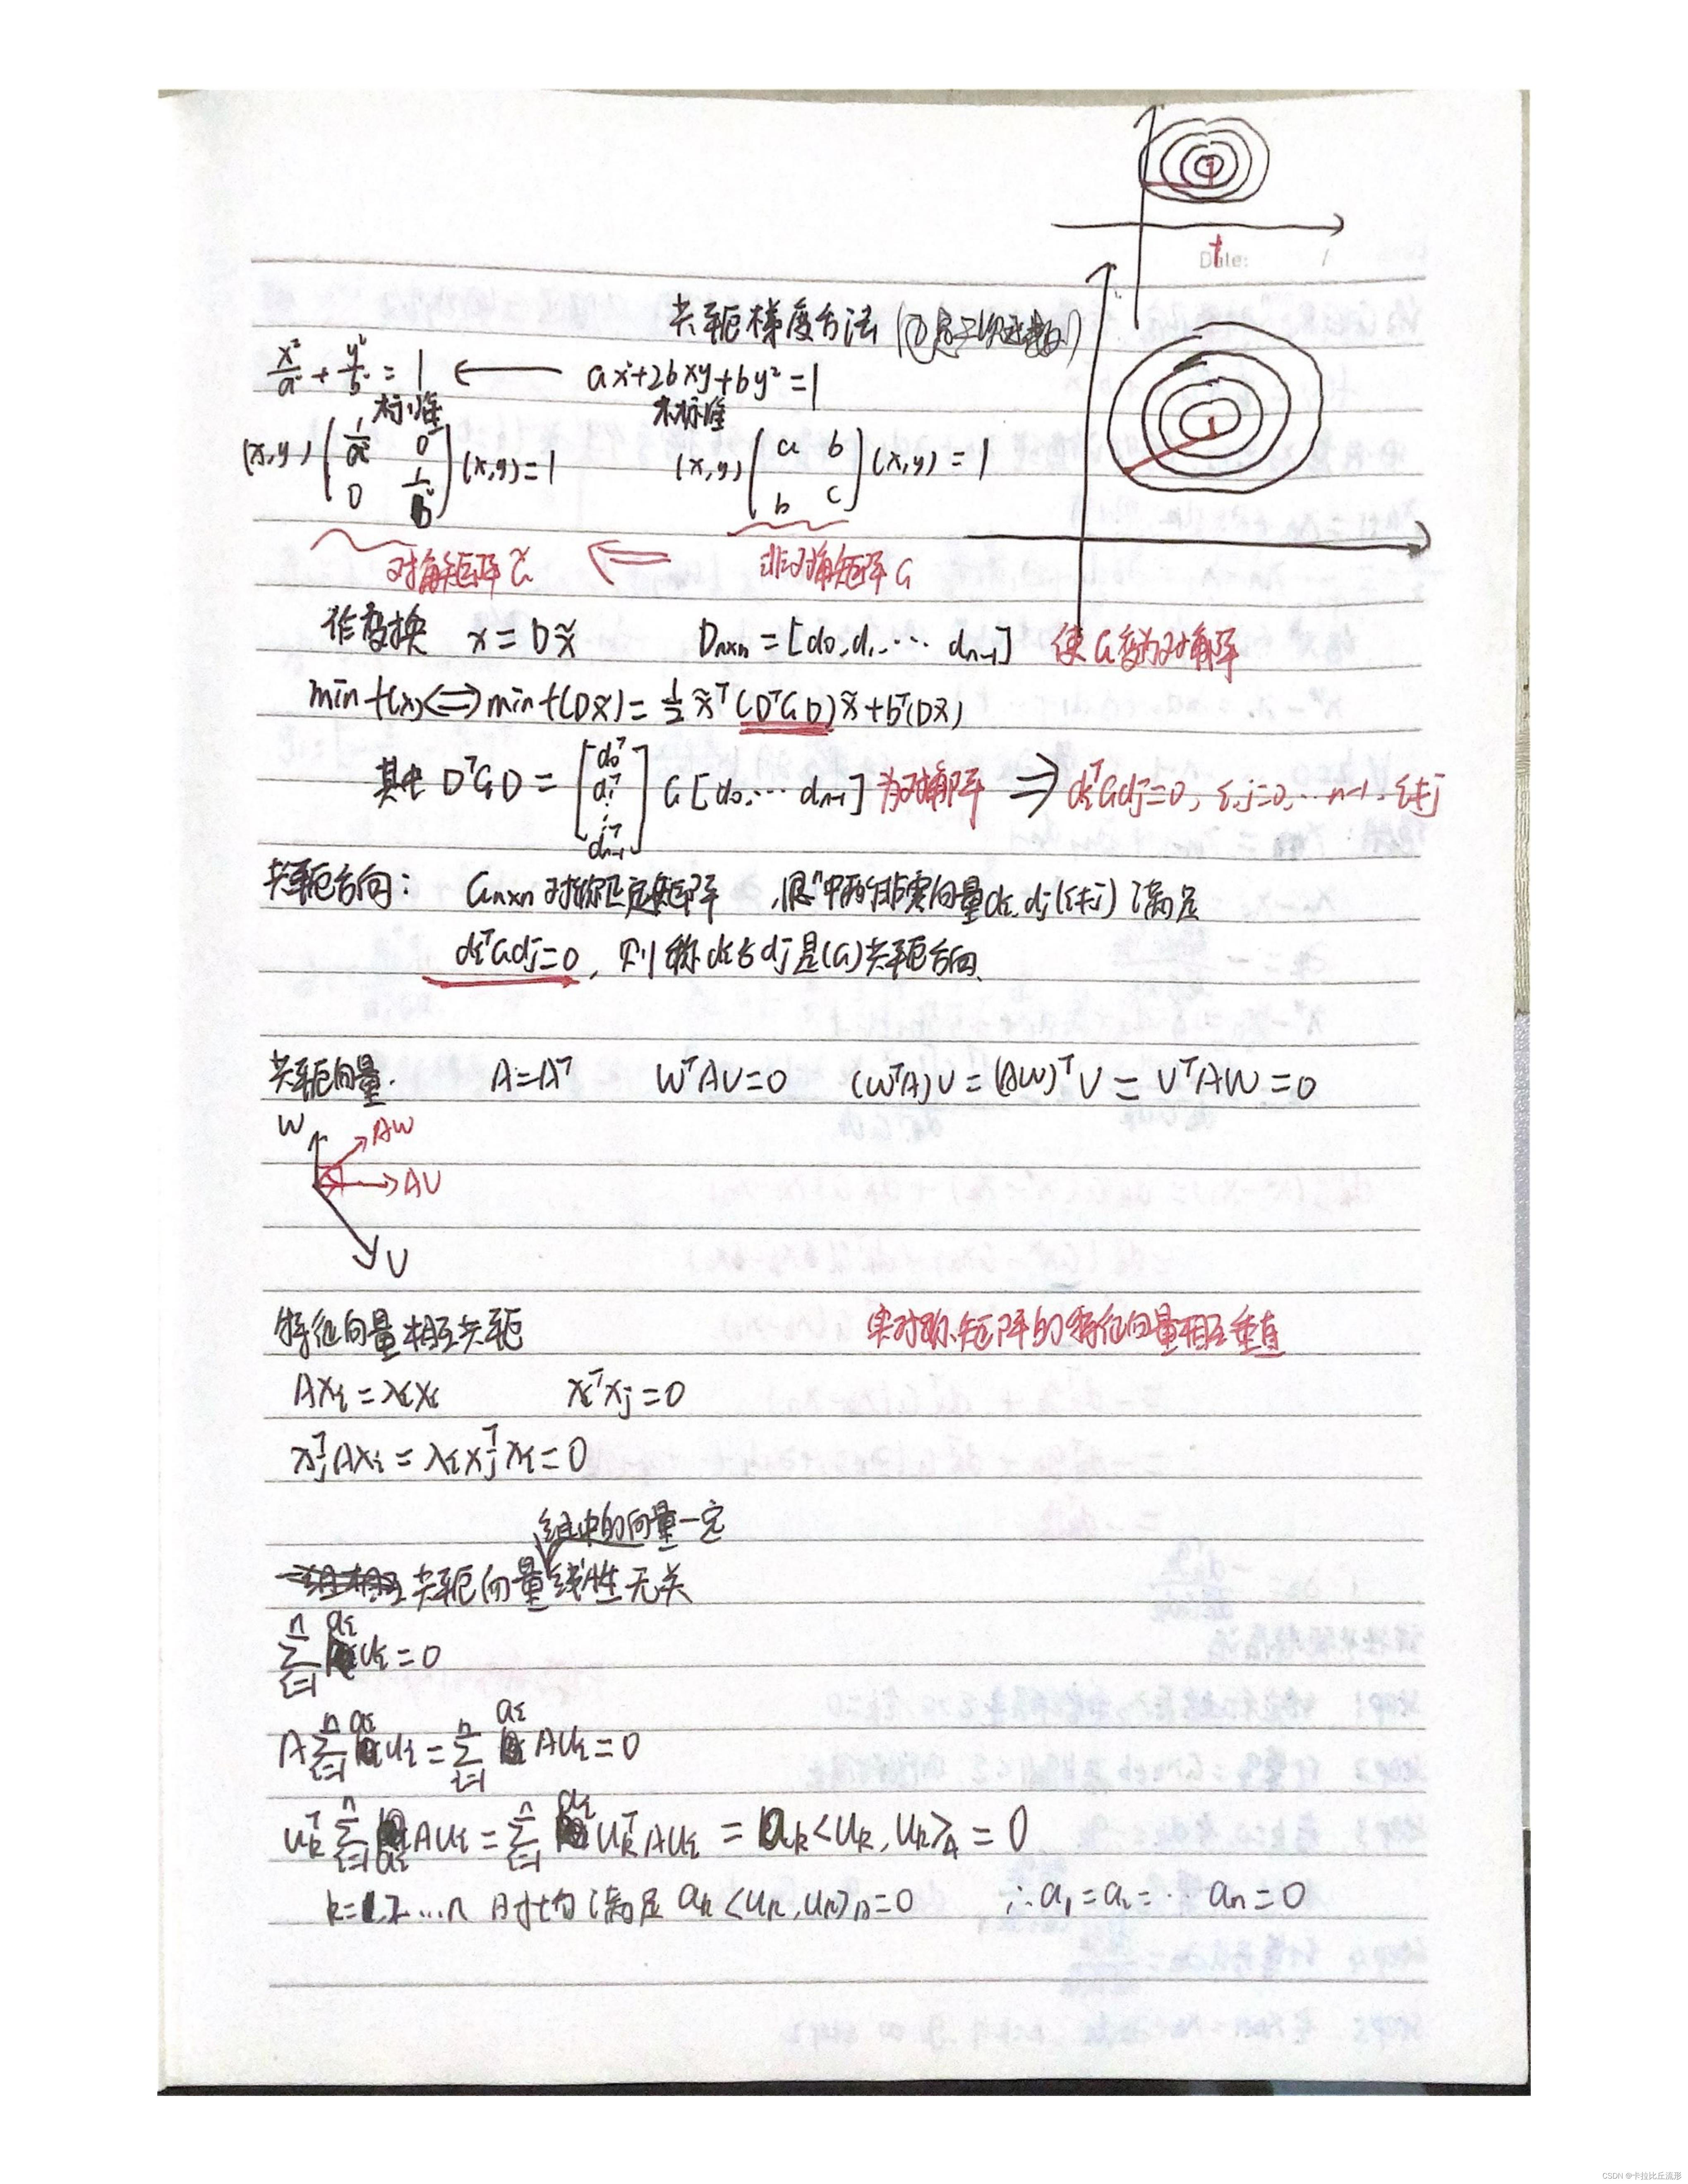 Date:
共轭梯度方法 (①总二次函数)
x²/a² + y²/b² = 1 ← ax²+2bxy+by²=1
标准 未标准
(x,y) [1/a² 0; 0 1/b²] (x,y) = 1 (x,y) [a b; b c] (x,y) = 1
对角矩阵 G̃ ⇐ 非对角矩阵 G
作变换 x = Dx̃ Dn×n = [d0, d1, ⋯ dn-1] 使G变为对角阵
min f(x) ⟺ min f(Dx̃) = ½ x̃ᵀ(DᵀGD)x̃ + bᵀ(Dx̃)
其中 DᵀGD = [d0ᵀ; d1ᵀ; ⋮; dn-1ᵀ] G [d0, ⋯ dn-1] 为对角阵 ⟹ diᵀGdj=0, i,j=0,⋯n-1. i≠j
共轭方向: Gn×n 对称正定矩阵, Rⁿ中的非零向量di, dj(i≠j) 满足
diᵀGdj=0, 则称di与dj是(G)共轭方向.
共轭向量. A=Aᵀ WᵀAV=0 (WᵀA)V = (AW)ᵀV = VᵀAW = 0
W AW
AV
V
特征向量相互共轭 实对称矩阵的特征向量相互垂直
Axi = λixi xiᵀxj = 0
xjᵀAxi = λixjᵀxi = 0
组中的向量一定
共轭向量线性无关
∑ᵢ₌₁ⁿ ai ui = 0
A∑ᵢ₌₁ⁿ ai ui = ∑ᵢ₌₁ⁿ ai Aui = 0
ukᵀ ∑ᵢ₌₁ⁿ ai Aui = ∑ᵢ₌₁ⁿ ai ukᵀAui = ak<uk, uk>A = 0
k=1,2…n 时均满足 ak<uk, uk>A=0 ∴a1=a2=⋯an=0
CSDN @卡拉比丘流形